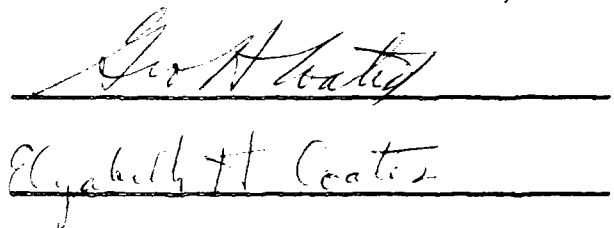 Geo H Coates
Elizabeth H Coates